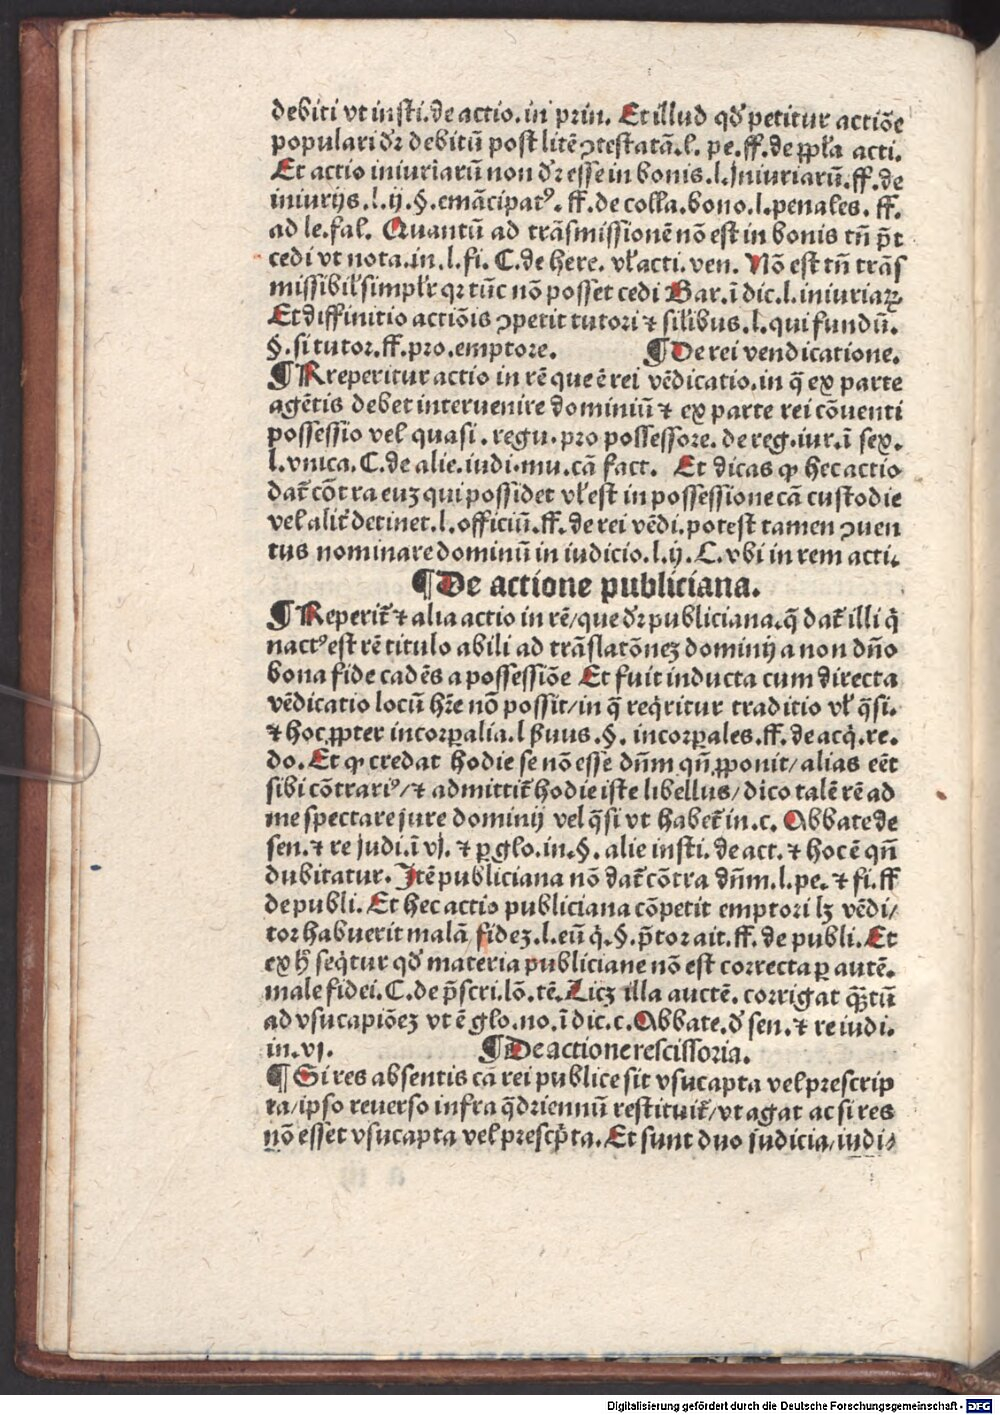 debiti vt insti.de actio.in prin. Et illud qd̛ petitur actiõe
populari dr̃ debitũ post litẽ ꝯtestatã.l. pe.ff.de ppl̃a acti.
Et actio iniuriarũ non dr̃ esse in bonis.l.Iniuriarũ.ff.de
iniurijs.l.ij.§.emãcipatꝰ. ff.de colla.bono.l.penales. ff.
ad le.fal. Quantũ ad trãsmissionẽ nõ est in bonis tñ p̃t
cedi vt nota.in.l.fi. C.de here. vl̃ acti.ven. Nõ est tñ trãs
missibil̃ simpl̃r qꝛ tũc nõ posset cedi Bar.ĩ dic.l.iniuriaꝝ.
Et diffinitio actiõis ꝯpetit tutori ⁊ sil̃ibus.l.qui fundũ.
§.si tutor.ff.pro.emptore. ¶ De rei vendicatione.
¶ Rreperitur actio in rẽ que ẽ rei vẽdicatio.in q̃ ex parte
agẽtis debet interuenire dominiũ ⁊ ex parte rei cõuenti
possessio vel quasi.regu.pro possessore.de reg.iur.ĩ sex.
l.vnica.C.de alie.iudi.mu.cã fact. Et dicas ꝙ hec actio
dat̃ cõtra euꝫ qui possidet vl̃ est in possessione cã custodie
vel alit̃ detinet.l.officiũ.ff.de rei vẽdi.potest tamen ꝯuen
tus nominare dominũ in iudicio.l.ij.C.vbi in rem acti.
¶ De actione publiciana.
¶ Reperit̃ ⁊ alia actio in rẽ/que dr̃ publiciana.q̃ dat̃ illi q̇
nactꝰ est rẽ titulo abili ad trãslatõneꝫ dominij a non dño
bona fide cadẽs a possessiõe Et fuit inducta cum directa
vẽdicatio locũ hr̃e nõ possit/in q̃ req̇ritur traditio vl̃ q̃si.
⁊ hoc ꝓpter incorꝑalia.l ẞuus.§. incorꝑales.ff.de acq̇.re.
do.Et ꝙ credat hodie se nõ esse dñm qñ ꝓponit/alias eẽt
sibi cõtrariꝰ/⁊ admittit̃ hodie iste libellus/dico talẽ rẽ ad
me spectare jure dominij vel q̃si vt habet̃ in.c. Abbate de
sen.⁊ re judi.ĩ vj.⁊ ꝑ glo.in.§.alie insti.de act.⁊ hoc ẽ qñ
dubitatur.Itẽ publiciana nõ dat̃ cõtra dñm.l.pe.⁊ fi.ff
de publi.Et hec actio publiciana cõpetit emptori lꝫ vẽdi/
tor habuerit malã fideꝫ.l.eũ q̇.§.p̃tor ait.ff.de publi.Et
ex h̃ seq̇tur qd̛ materia publiciane nõ est correcta ꝑ autẽ.
male fidei.C.de p̃scri.lõ.tẽ.Licꝫ illa auctẽ.corrigat q̃ꝫtũ
ad vsucapiõeꝫ vt ẽ glo.no.ĩ dic.c.Abbate.d̛ sen.⁊ re iudi.
in.vj. ¶ De actione rescissoria.
¶ Si res absentis cã rei publice sit vsucapta vel prescrip
ta/ipso reuerso infra q̃driennũ restituit̃/vt agat ac si res
nõ esset vsucapta vel prescp̃ta.Et sunt duo judicia/iudi/
Digitalisierung gefördert durch die Deutsche Forschungsgemeinschaft - DFG